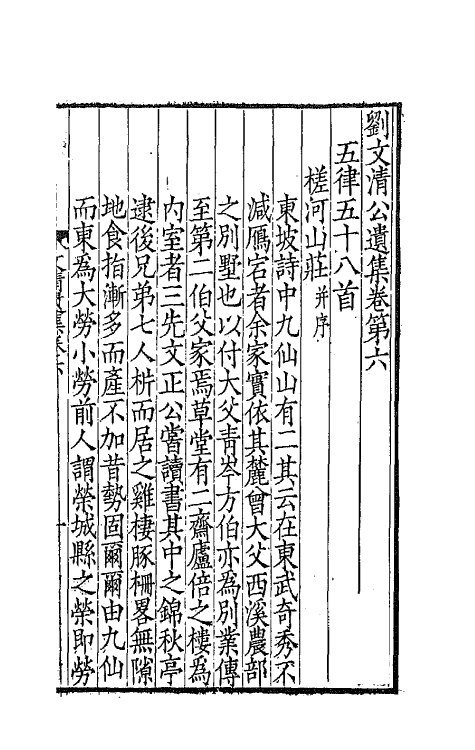 劉文清公遺集卷第六
五律五十八首
槎河山莊并序
東坡詩中九仙山有二其云在東武奇秀不
減鴈宕者余家實依其麓曾大父西溪農部
之別墅也以付大父靑岑方伯亦為別業傳
至第二伯父家焉草堂有二齋廬倍之樓為
內室者三先文正公嘗讀書其中之錦秋亭
逮後兄弟七人析而居之雞棲豚柵畧無隙
地食指漸多而產不加昔勢固爾爾由九仙
而東爲大勞小勞前人謂榮城縣之榮即勞